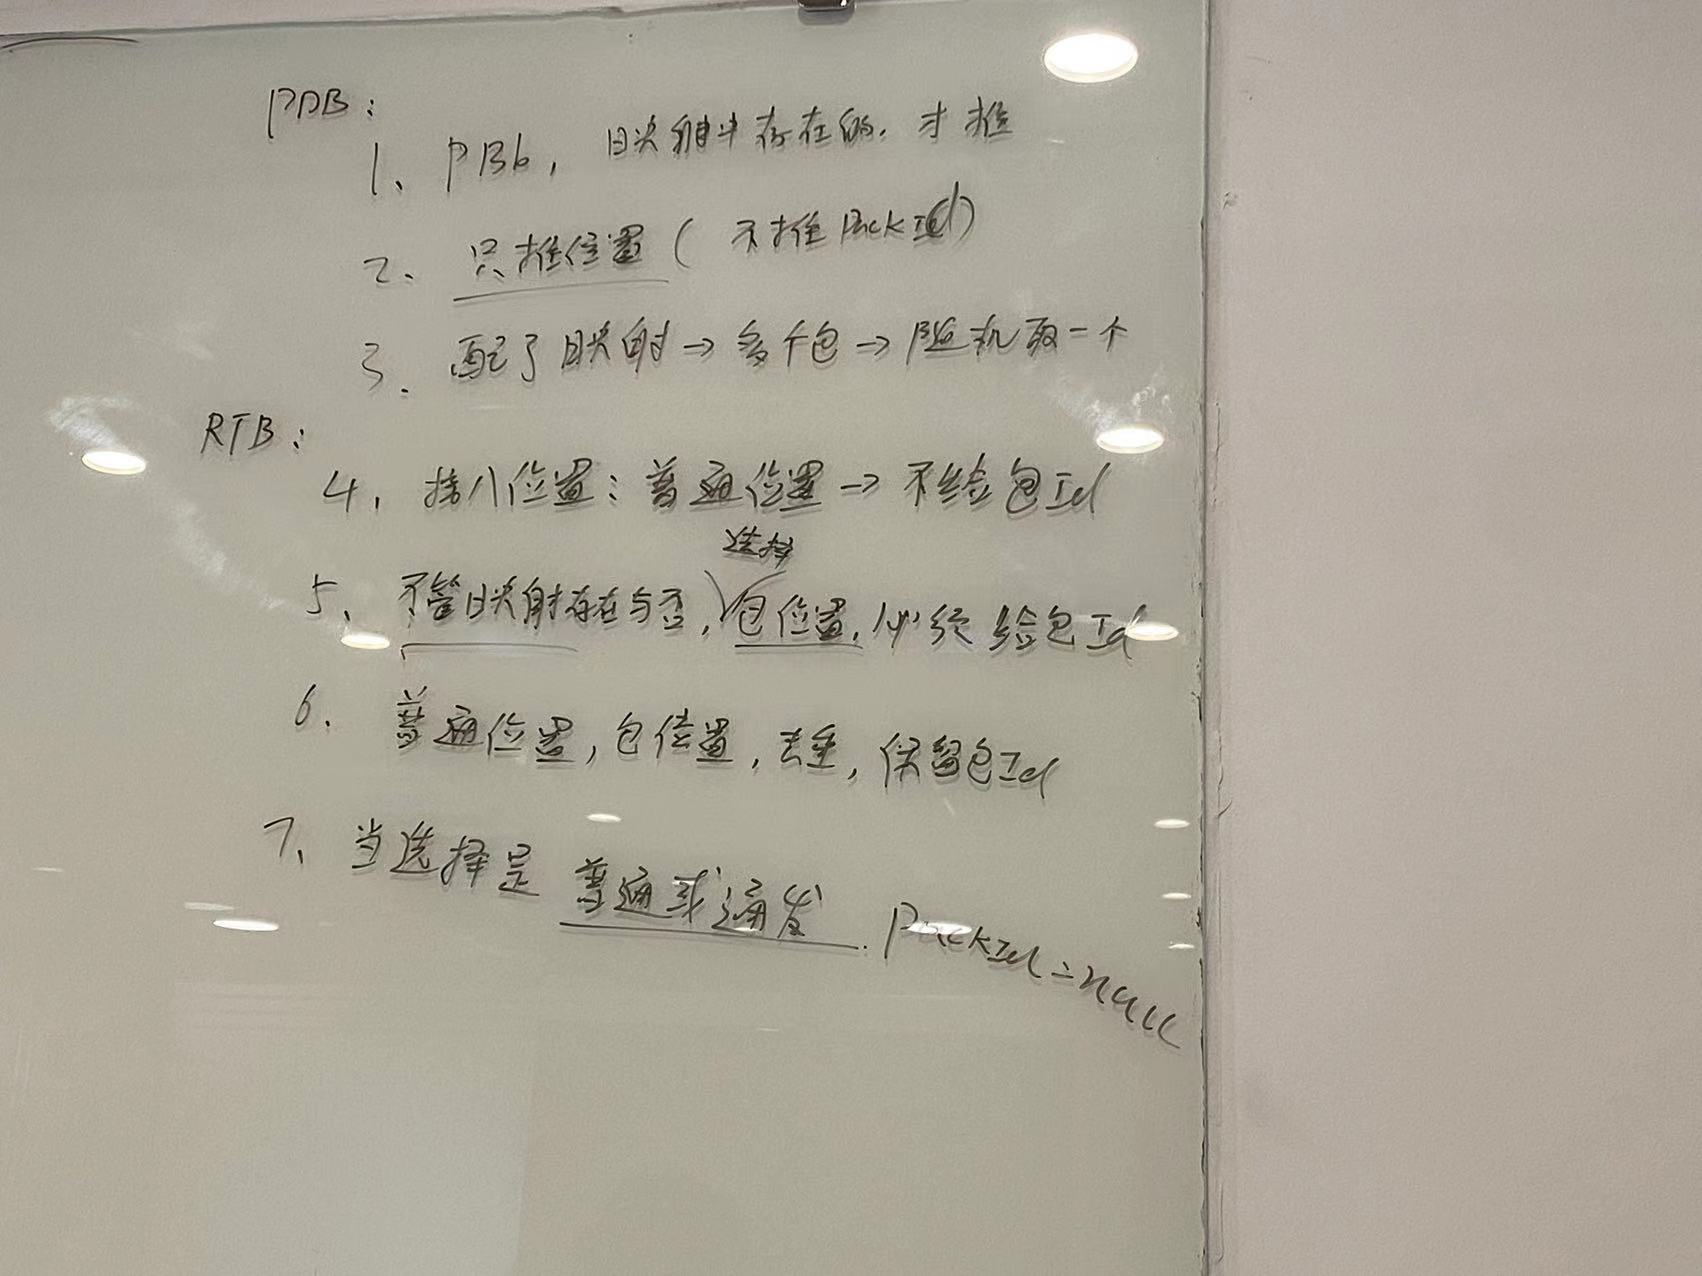 PDB:
1、PBb，映射中存在的，才推
2、只推位置（不推PackId）
3、配了映射→多个包→随机取一个
RTB:
4、接入位置：普通位置→不给包Id
选择
5、不管映射存在与否，包位置，必须给包Id
6、普通位置，包位置，去重，保留包Id
7、当选择是普通或通发．PackId=null